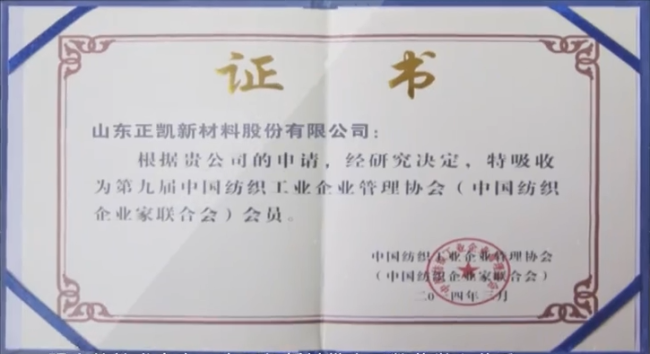 证书
山东正凯新材料股份有限公司：
根据贵公司的申请，经研究决定，特吸收
为第九届中国纺织工业企业管理协会（中国纺织
企业家联合会）会员。
中国纺织工业企业管理协会
（中国纺织企业家联合会）
二〇一四年三月